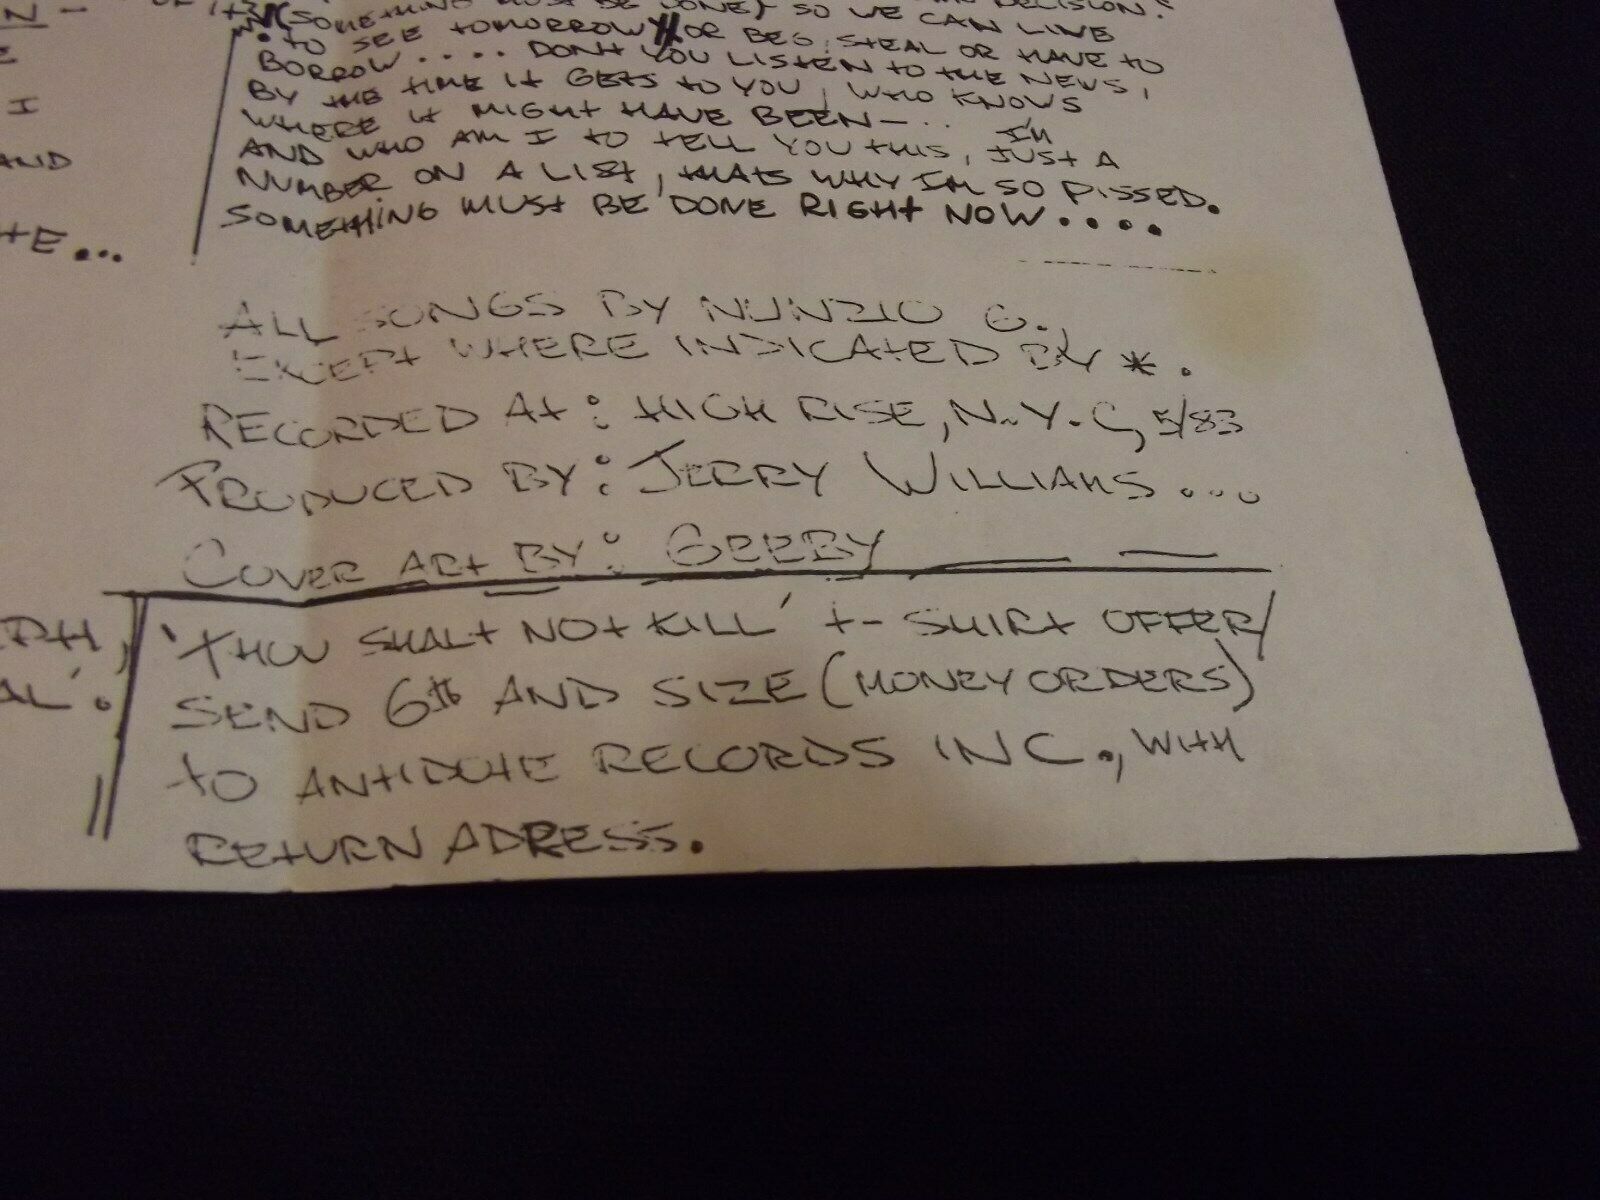 (SOMETHING MUST BE DONE) SO WE CAN LIVE
TO SEE TOMORROW, OR BEG, STEAL OR HAVE TO
BORROW.... DON'T YOU LISTEN TO THE NEWS,
BY THE TIME IT GETS TO YOU, WHO KNOWS
WHERE IT MIGHT HAVE BEEN-..
AND WHO AM I TO TELL YOU THIS, I'M JUST A
NUMBER ON A LIST, THATS WHY I'M SO PISSED.
SOMETHING MUST BE DONE RIGHT NOW....
I
AND
ALL SONGS BY NUNZIO G.,
EXCEPT WHERE INDICATED BY *.
RECORDED AT: HIGH RISE, N.Y.C, 5/83
PRODUCED BY: JERRY WILLIAMS...
COVER ART BY: GEEBY
'THOU SHALT NOT KILL' T-SHIRT OFFER/
SEND 6$ AND SIZE (MONEY ORDERS)
TO ANTIDOTE RECORDS INC., WITH
RETURN ADRESS.